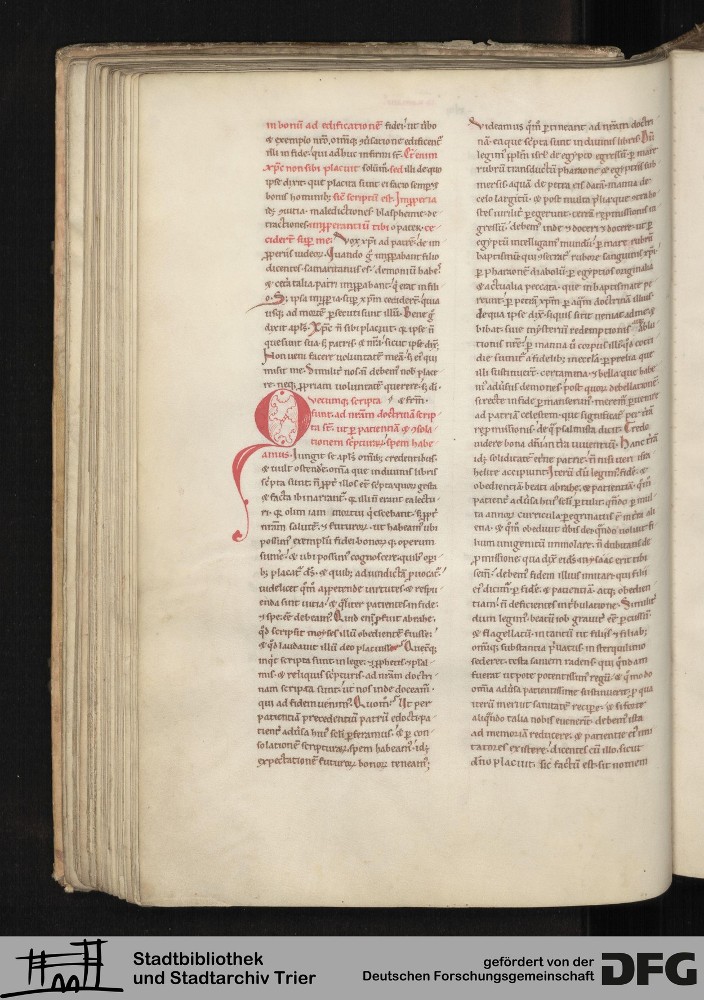 in bonū ad edificationē fidei ut ūbo
& exemplo nr̄o
illi in fide qui adhuc infirmi st̄ · Et enim
xp̄c non sibi placuit solum sed illi de quo
ipse dixit que placita sunt ei facio semp̄ &
bonis hominib; sic̄ scriptū est · Improperia
maledictiones blasphemie de
tractiones improperantiū tibi o pater ce
cidert̄ sup me · Vox xp̄i ad patrē de im
properiis iudeoꝝ · Quando g̊ impperabant filio
dicentes samaritanus es demoniū habes
& cet̄a talia patri
Si ipsa sup xp̄m cecidert̄
usq; ad mortē persecuti sunt illū · Bene g̊
dixit apls̄ · Xp̄c n̄ sibi placuit · qa ipse n̄
sicut ipse dix̄
Non veni facere voluntatē meā s; ei qui
misit me · Similit̄ nos n̄ debem̄ nob place
re neq; ppriam voluntatē querere s; di
Quecumq; scripta
sunt ad nr̄am doctrinā scrip
ta st̄ · ut per patientiā & c̄sola
tionem scripturaꝝ spem habe
amus · Iungit se apls̄ om̄ib; credentibus
& vult ostendere om̄ia que in divinis libris
scripta sunt
& facta
olim iam mortui
nr̄am salutē & futuroꝝ ut habeam̄ ubi
possim̄ exemplū fidei bonoꝝ q; operum
sumere & ubi possim̄ cognoscere quib; operi
b; placat̄ ds̄ & quib; ad vindictā pvocat̄
videlicet appetende virtutes & respu
enda sint vitia & qualiter patientes in fide
& spe eē debeam̄ · Quid enī abrahe
qd̄ scripsit moyses illū obedientē fuisse
& qd̄ laudavit illū deo placuisse · Quecūq;
inq̄t scripta sunt in lege & pphetis & psal
mis & reliquis scripturis ad nr̄am doctri
nam scripta sunt ut nos inde doceam̄
qui ad fidem venim̄ · Quom̊ · Ut per
patientiā precedentiū patrū edocti pa
tient̄ adūsa hui scl̄i perferamus & per con
solationē scripturaꝝ spem habeam̄ id;
expectationē futuroꝝ bonoꝝ teneam̄;
Videamus pertineant ad nr̄am doctri
nā eaque scripta sunt in divinis libris · Dū
legim̄ ppl̄m isrl̄ de egypto egressū per mare
rubrū transductū pharaone & egyptiis sub
mersis aquā de petra eis datā manna de
celo largitū & post multa plia que contra ho
stes virilit̄ pegerunt terrā repromissionis in
gressū · debem̄ inde & doceri & docere ut per
egyptū intelligam̄ mundū per mare rubrū
baptismū qui c̄secrat̄ rubore sanguinis xp̄i
per pharaonē diabolū per egyptios originalia
& actualia peccata que in baptismate pe
reunt · per petrā xp̄m per aquā doctrinā illius
de qua ipse dix̄ · siquis sitit veniat ad me &
bibat · sive mysteriū redemptionis & ablu
tionis nr̄e · per manna
die sumit̄ a fidelib; in eccl̄a · per prelia que
illi sustinuert̄ certamina & bella que habe
m̄ adūsus demones · post quoꝝ debellationē
si recte in fide permanserim̄ merem̄ pvenire
ad patriā celestem que significat̄ per terrā
repromissionis · de qua psalmista dicit · Credo
videre bona dn̄i in t̄ra viventiū · Hanc t̄rā
id; soliditatē et̄ne patrie n̄ nisi veri isr̄a
helite accipiunt · Iterū dū legim̄ fidē &
obedientiā beati abrahe & patientiā
patient̄ adūsa hui scl̄i ptulit per mul
ta annoꝝ curricula peregrinatus ē in t̄ra ali
ena & obedivit dn̄o volunt̄ fi
lium unigenitū immolare n̄ dubitans de
pmissione qua dix̄ in ysaac erit tibi
sem̄ · debem̄ fidem illius imitari qui filii
ei dicim̄ per fidē & patientiā atq; obedien
tiam n̄ deficientes in tribulatione · Similit̄
dum legim̄ beatū iob gravit̄ eē percussū
& flagellatū in tantū ut filiis & filiab;
om̄iq; substantia pvatus in sterquilinio
sederet testa saniem radens qui qndam
fuerat utpote potentissim̄ regū & quomodo
om̄ia adūsa patientissime sustinuerit per qua
iterū meruit sanitatē recipere & si forte
aliqdo talia nobis evenerit̄ debem̄ ista
ad memoriā reducere & patienter ei imi
tatores existere dicentes cū illo sicut
dn̄o placuit · sic factū est · sit nomen
Stadtbibliothek
und Stadtarchiv Trier
gefördert von der
Deutschen Forschungsgemeinschaft
DFG